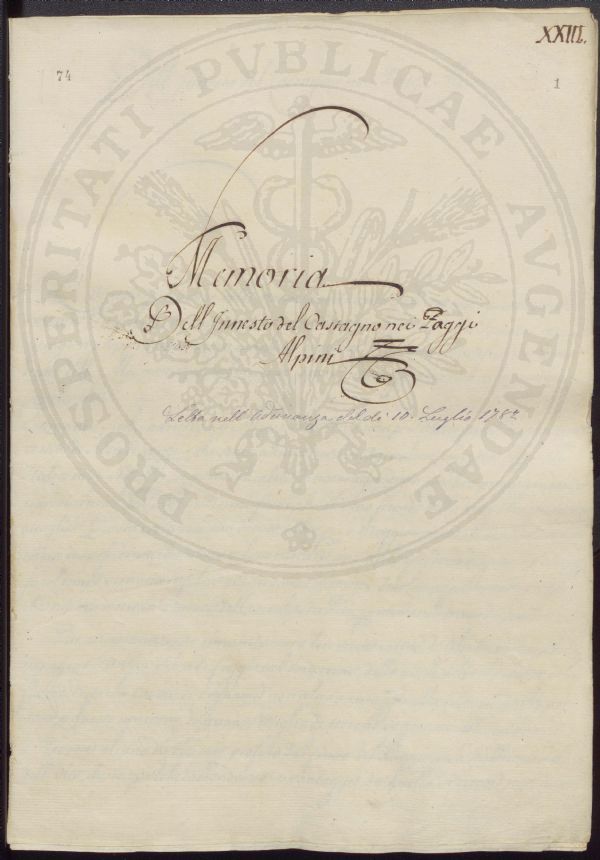 XXIII.
74
1
PROSPERITATI PVBLICAE AVGENDAE
Memoria
Dell Innesto del Castagno nei Paggi
Alpini
Letta nell'Adunanza del dì 10. Luglio 178